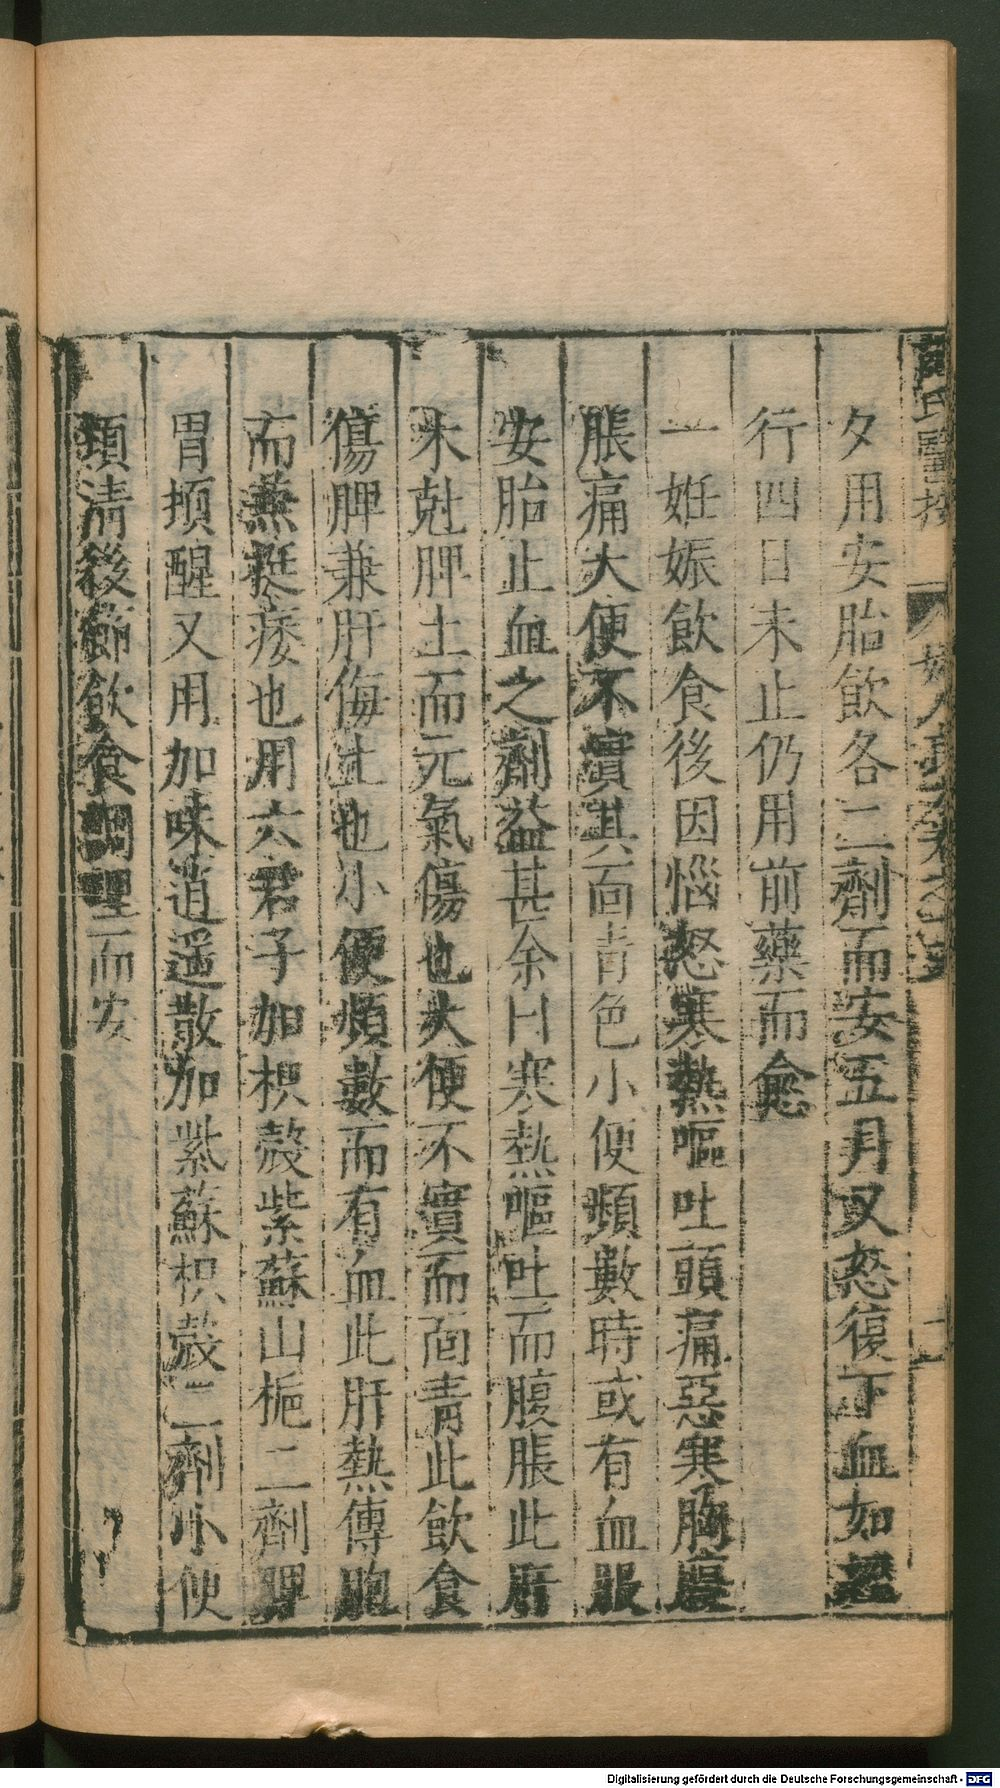 氏醫按
夕用安胎飲各二劑而安五月又怒復下血如
行四日未止仍用前藥而愈
一姙娠飲食後因惱怒寒熱嘔吐頭痛惡寒胸腹
脹痛大便不實其面青色小便頻數時或有血服
安胎止血之劑益甚余曰寒熱嘔吐而腹脹此肝
木尅脾土而元氣傷也大便不實而面青此飲食
傷脾兼肝侮土也小便頻數而有血此肝熱傳胞
而兼挺痿也用六君子加枳殼紫蘇山梔二劑脾
胃頓醒又用加味逍遥散加紫蘇枳殼二劑小便
頓清後節飲食調理而安
Digitalisierung gefördert durch die Deutsche Forschungsgemeinschaft - DFG